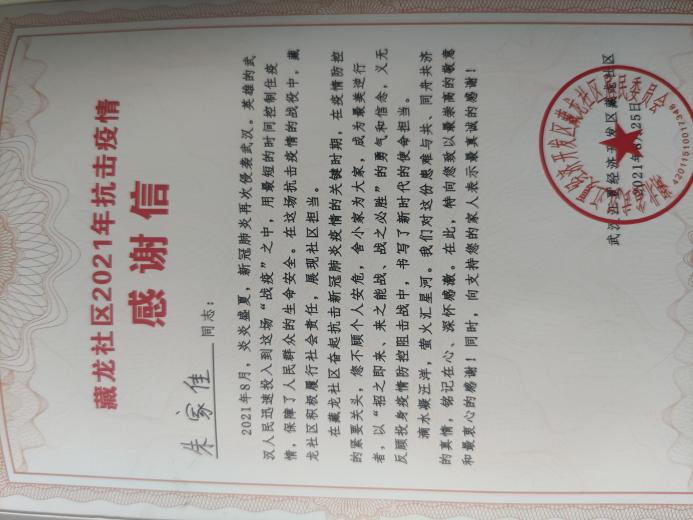 藏龙社区2021年抗击疫情
感谢信
朱家佳 同志：
2021年8月，炎炎盛夏，新冠肺炎再次侵袭武汉。英雄的武
汉人民迅速投入到这场“战疫”之中，用最短的时间控制住疫
情，保障了人民群众的生命安全。在这场抗击疫情的战役中，藏
龙社区积极履行社会责任，展现社区担当。
在藏龙社区奋起抗击新冠肺炎疫情的关键时期，在疫情防控
的紧要关头，您不顾个人安危，舍小家为大家，成为最美逆行
者，以“招之即来、来之能战、战之必胜”的勇气和信念，义无
反顾投身疫情防控阻击战中，书写了新时代的使命担当。
滴水凝汪洋，萤火汇星河。我们对这份患难与共、同舟共济
的真情，铭记在心、深怀感激。在此，特向您致以最崇高的敬意
和最衷心的感谢！同时，向支持您的家人表示最真诚的感谢！
武汉江夏经济开发区藏龙社区
2021年8月25日
4201151001734